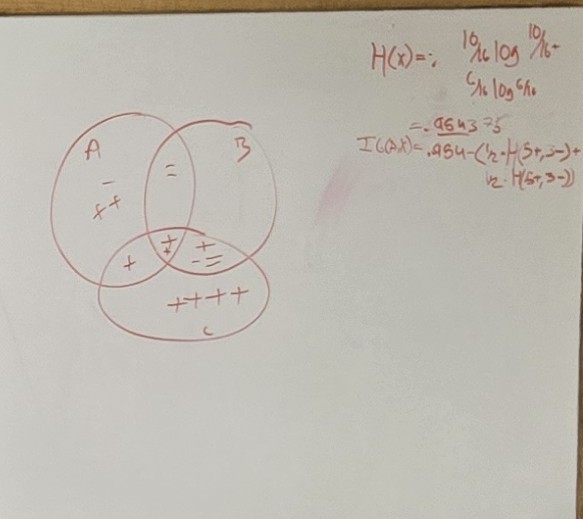 H(x)=: 10/16 log 10/16 -
6/16 log 6/16
= .9543
I(A,X)= .954-(1/2·H(5+,3-)+
1/2·H(5+,3-))
A
B
=
-
++
+
+
+
+
-=
++++
C